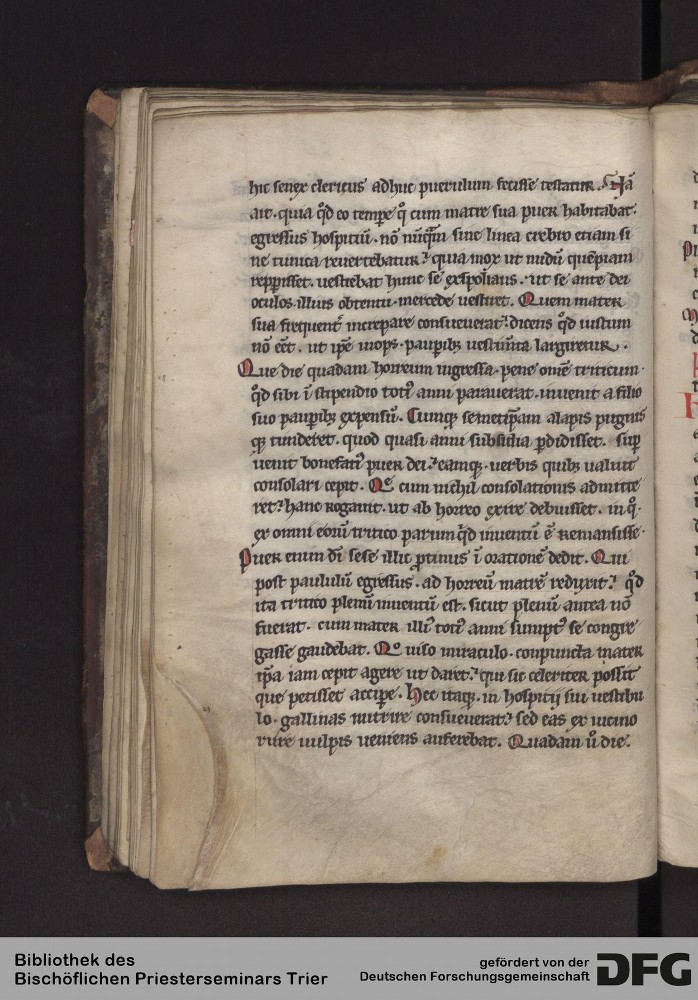 hic senex clericus adhuc puerulum fecisse testatur. Nā
ait. quia qd̓ eo tempe̅ q̊ cum matre sua puer habitabat.
egressus hospitiū. nō nūq̄m sine linea crebro etiam si
ne tunica reuertebatur? quia mox ut nudū quēpiam
repp̄isset. uestiebat hunc se exspolians. ut se ante dei
oculos illius obtentu. mercede uestiret. Quem mater
sua frequent̄ increpare consueuerat? dicens qd̓ iustum
nō eēt. ut ip̄e inops. paupib; uestim̄ta largiretur.
Que die quadam horreum ingressa. pene omē triticum.
qd̓ sibi ī stipendio toti᾿ anni parauerat. inuenit a filio
suo paupib; expensū. Cumq; semetip̄sam alapis pugnis
q; tunderet. quod quasi anni subsidia pdidisset. sup
uenit bonefati᾿ puer dei? eamq;. uerbis quib; ualuit
consolari cepit. Q̄ cum nichil consolationis admitte
ret? hanc rogauit. ut ab horreo exire debuisset. in q̊.
ex omni eorū tritico parum qd̓ inuentū ē remansisse.
Puer enim dī sese illic ptinus ī orationē dedit. Qui
post paululū egressus. ad horreū matrē reduxit? qd̓
ita tritico plenū inuentū est. sicut plenū antea nō
fuerat. cum mater illi᾿ toti᾿ anni sumpt᾿ se congre
gasse gaudebat. Q̊ uiso miraculo. conpuncta mater
ip̄a iam cepit agere ut daret? qui sic celeriter possit
que petisset accipe. Hec itaq;. in hospitij sui uestibu
lo. gallinas nutrire consueuerat? sed eas ex uicino
rure uulpis ueniens auferebat. Quadam ū die.
Bibliothek des
Bischöflichen Priesterseminars Trier
gefördert von der
Deutschen Forschungsgemeinschaft
DFG